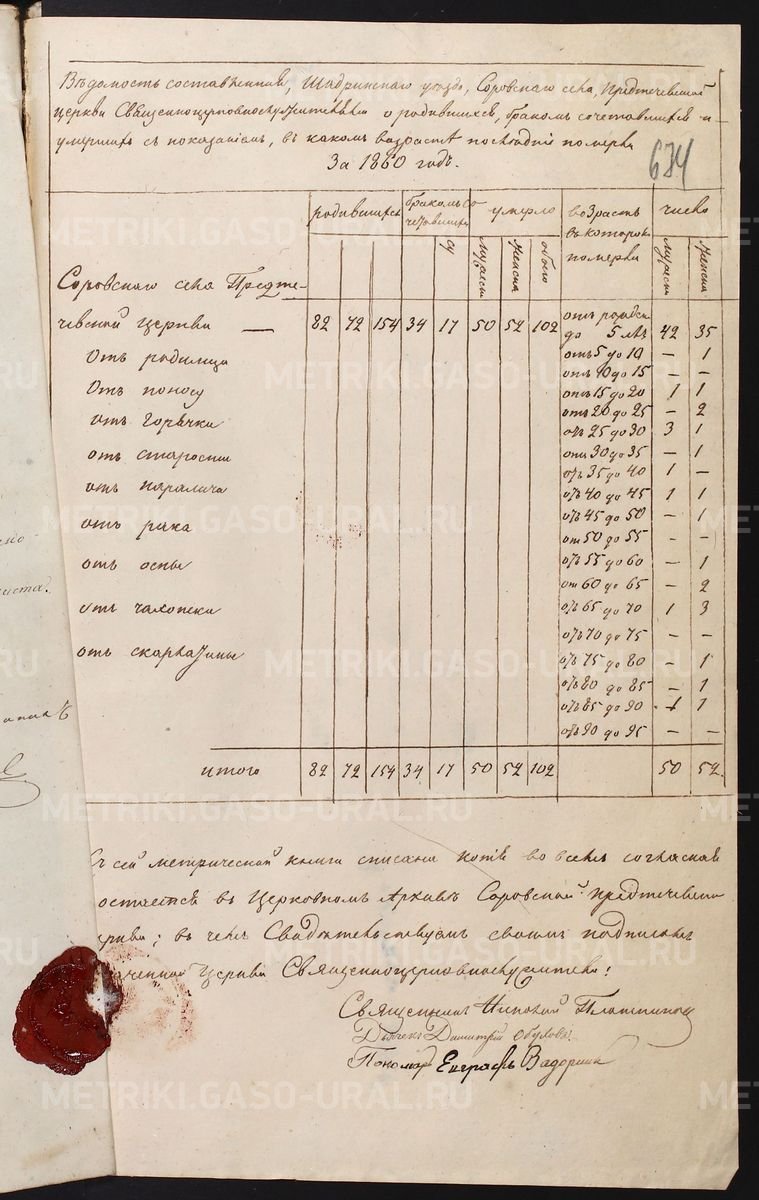 Вѣдомость составленная, Шадринскаго уѣзда, Соровскаго села, Предтечевской
церкви Священноцерковнослужителями о родившихся, бракомъ сочетавшихся и
умершихъ съ показаніемъ, въ какомъ возрастѣ послѣдніе померли
За 1860 годъ.
674
родившихся бракомъ со умерло возрастъ число
четавшихся въ которомъ
померли
мужеск женска обоего мужеск женска
Соровскаго села Предте-
чевской церкви — 82 72 154 34 17 50 52 102 отъ рожден
до 5 лѣтъ 42 35
Отъ родимца отъ 5 до 10 — 1
отъ 10 до 15 — —
Отъ поносу отъ 15 до 20 1 1
отъ 20 до 25 — 2
отъ горячки отъ 25 до 30 3 1
отъ 30 до 35 — 1
отъ старости отъ 35 до 40 1 —
отъ паралича отъ 40 до 45 1 1
отъ 45 до 50 — 1
отъ рака отъ 50 до 55 — —
отъ оспы отъ 55 до 60 — 1
отъ 60 до 65 — 2
отъ чахотки отъ 65 до 70 1 3
отъ 70 до 75 — —
отъ скарлатины отъ 75 до 80 — 1
отъ 80 до 85 — 1
отъ 85 до 90 1 1
отъ 90 до 95 — —
итого 82 72 154 34 17 50 52 102 50 52.
Съ сей метрической книги списана копія во всемъ согласная
остается въ Церковномъ Архивѣ Соровской Предтечевской
церкви; въ чемъ Свидѣтельствуемъ своимъ подписомъ
означенной Церкви Священноцерковнослужители:
Священникъ Николай
Дьячекъ Димитрій Обуховъ
Пономарь Евграфъ
METRIKI.GASO-URAL.RU